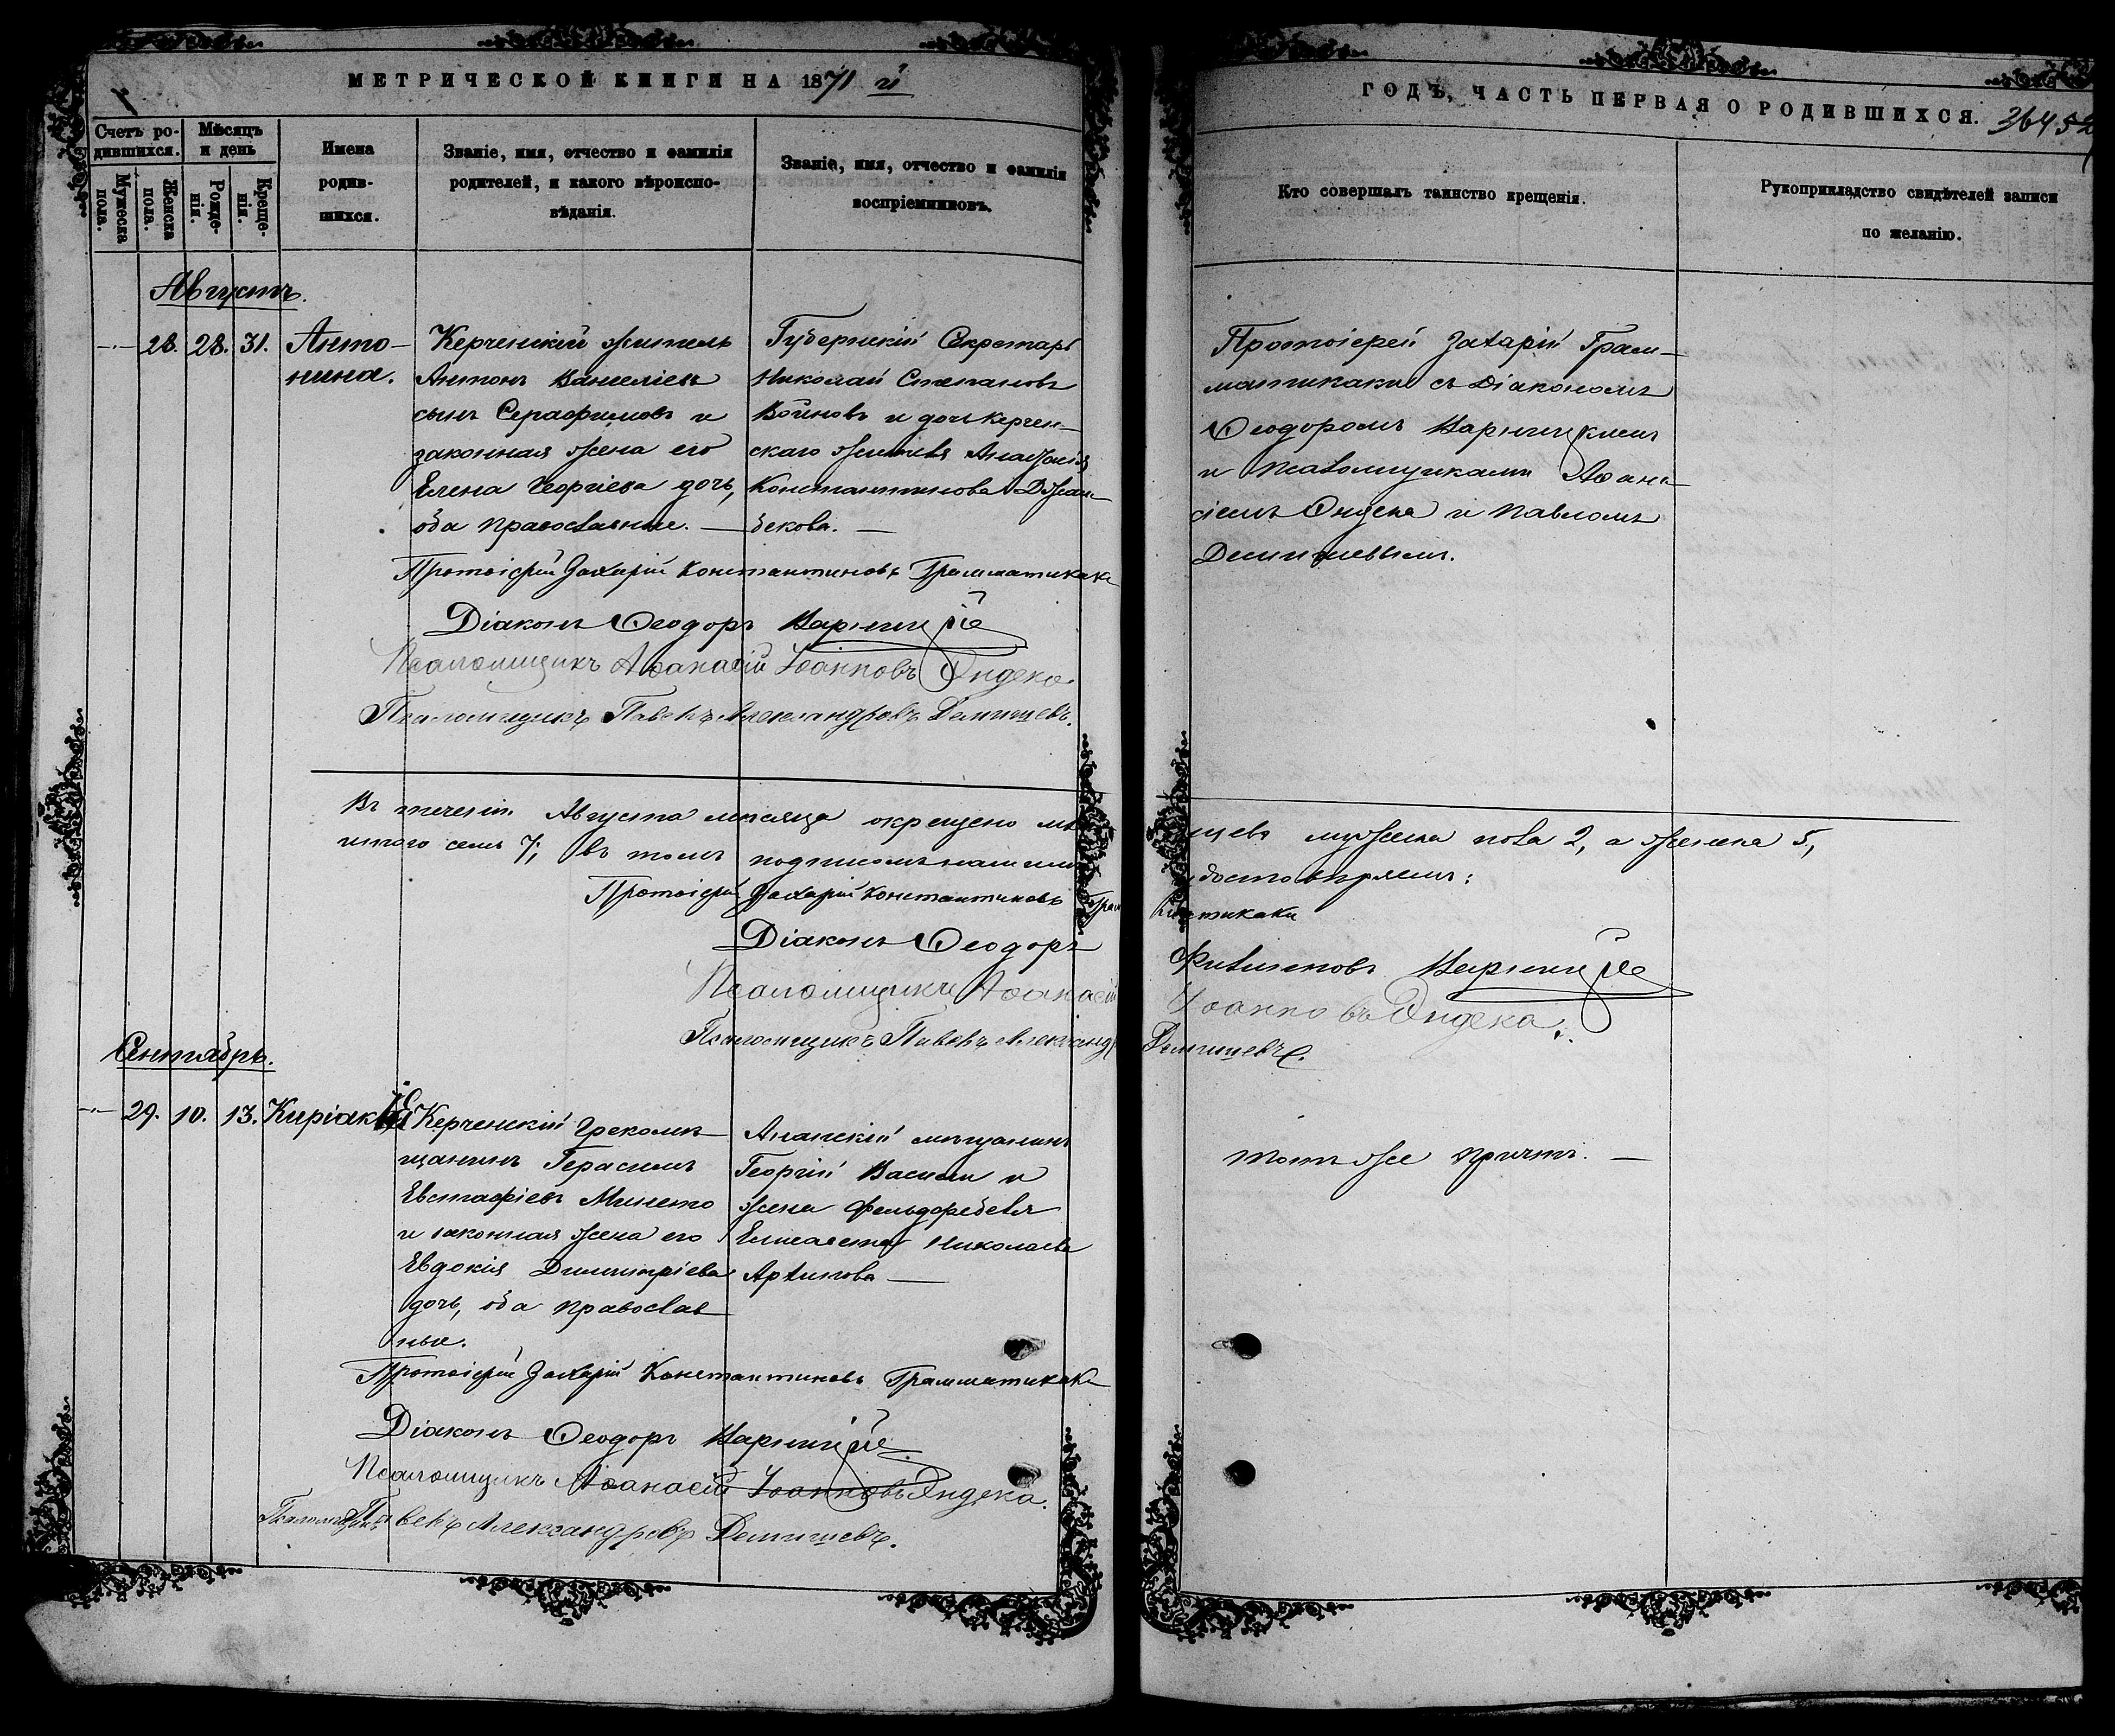 МЕТРИЧЕСКОЙ КНИГИ НА 1871 й
ГОДЪ, ЧАСТЬ ПЕРВАЯ О РОДИВШИХСЯ. 364
Счетъ ро-
дившихся.
Мужеска пола.
Женска пола.
Мѣсяцъ
и день
Рожде-
нія.
Креще-
нія.
Имена
родив-
шихся.
Званіе, имя, отчество и фамилія
родителей, и какого вѣроиспо-
вѣданія.
Званіе, имя, отчество и фамилія
воспріемниковъ.
Кто совершалъ таинство крещенія.
Рукоприкладство свидѣтелей записи
по желанію.
Августъ.
28. 28. 31.
Анто-
нина.
Керченскій житель
Антонъ Вангеліевъ
сынъ Серафимовъ и
законная жена его
Елена Георгіева дочь,
оба православные.
Губернскій Секретарь
Николай Степановъ
Войновъ и дочь Керчен-
скаго жителя
Константинова
бекова.
Протоіерей Захарій Грам-
матикаки съ Діакономъ
Ѳеодоромъ Варницкимъ
и Псаломщиками Аѳана-
сіемъ Ондека и Павломъ
Демишевымъ.
Протоіерей Захарій Константиновъ Грамматикаки
Діаконъ Ѳеодоръ Варницкій
Псаломщикъ Аѳанасій Іоанновъ Ондека.
Псаломщикъ Павелъ Александровъ Демишевъ.
Въ теченіи Августа мѣсяца окрещено мла
денцевъ мужеска пола 2, а женска 5,
итого семь 7; въ томъ подписомъ нашимъ
достовѣряемъ:
Протоіерей Захарій Константиновъ Грамматикаки
Діаконъ Ѳеодоръ Филиповъ Варницкій
Псаломщикъ Аѳанасій Іоанновъ Ондека.
Псаломщикъ Павелъ Александ Демишевъ.
Сентябрь.
29. 10. 13.
Киріакія
Керченскій Грекомѣ-
щанинъ Герасимъ
Евстафіевъ Минето
и законная жена его
Евдокія Димитріева
дочь, оба православ
ные.
Анапскій мѣщанинъ
Георгій Васили и
жена фельдфебеля
Елисавета Николаева
Архипова
тотъ же причтъ.
Протоіерей Захарій Константиновъ Грамматикаки
Діаконъ Ѳеодоръ Варницкій
Псаломщикъ Аѳанасій Іоанновъ Ондека.
Псаломщикъ Павелъ Александровъ Демишевъ.